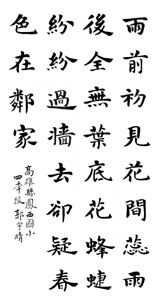 雨前初見花間蕊雨
後全無葉底花蜂蜨
紛紛過墻去卻疑春
色在鄰家
高雄縣鳳西國小
四年級 郭宇晴